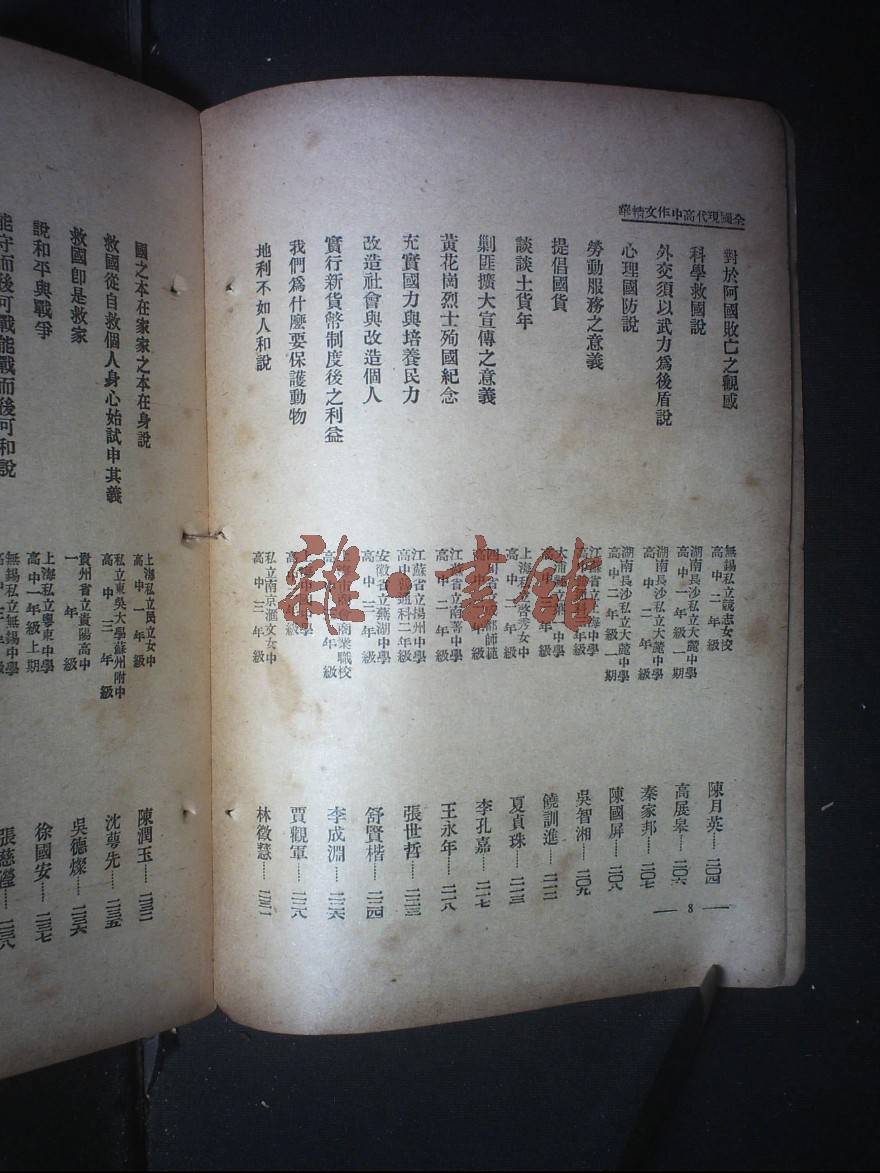 全國現代高中作文精華
對於阿國敗亡之觀感 無錫私立競志女校高中二年級 陳月英…… 二〇四
科學救國說 湖南長沙私立大麓中學高中一年級一期 高展皋…… 二〇六
外交須以武力為後盾說 湖南長沙私立大麓中學高中二年級 秦家邦…… 二〇七
心理國防說 湖南長沙私立大麓中學高中二年級一期 陳國屏…… 二〇八
勞動服務之意義 吳智湘…… 二〇九
提倡國貨 饒訓進…… 二一二
談談土貨年 上海私立啓秀女中高中一年級 夏貞珠…… 二一三
剿匪擴大宣傳之意義 李孔嘉…… 二一七
黃花崗烈士殉國紀念 江蘇省立南菁中學高中二年級 王永年…… 二一八
充實國力與培養民力 江蘇省立揚州中學高中普通科二年級 張世哲…… 二二三
改造社會與改造個人 安徽省立蕪湖中學高中三年級 舒賢楷…… 二二四
實行新貨幣制度後之利益 李成淵…… 二二六
我們爲什麼要保護動物 賈觀軍…… 二二八
地利不如人和說 私立南京滙文女中高中三年級 林徵慧…… 二三一
— 8 —
國之本在家家之本在身說 上海私立民立女中高中一年級 陳潤玉…… 二三二
救國從自救個人身心始試申其義 私立東吳大學蘇州附中高中三年級 沈蕚先…… 二三五
救國卽是救家 貴州省立貴陽高中一年級 吳德燦…… 二三六
說和平與戰爭 上海私立粵東中學高中一年級上期 徐國安…… 二三七
能守而後可戰能戰而後可和說 無錫私立無錫中學 張慈瀅…… 二三八
雜·書館